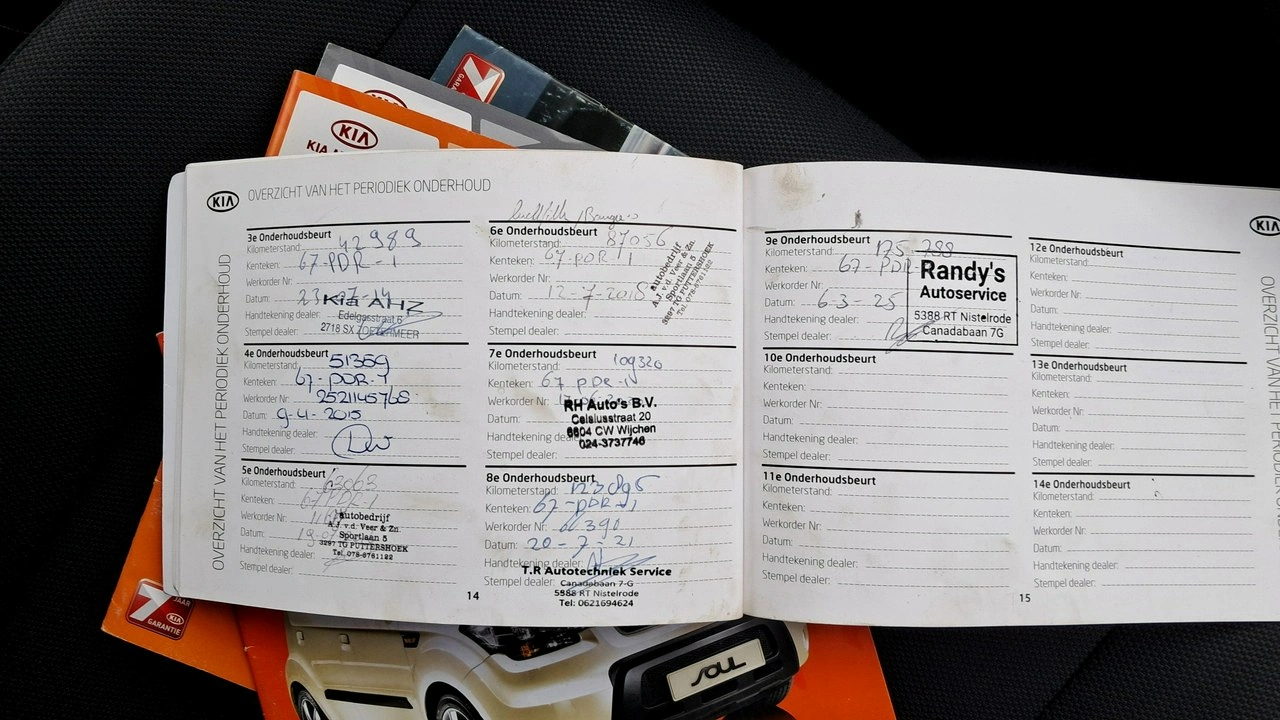 KIA
KIA
GARANTIE
7 JAAR
KIA
GARANTIE
SOUL
KIA OVERZICHT VAN HET PERIODIEK ONDERHOUD
OVERZICHT VAN HET PERIODIEK ONDERHOUD
3e Onderhoudsbeurt
Kilometerstand: 42989
Kenteken: 67-PDR-1
Werkorder Nr:
Datum: 23
Kia AHZ
Handtekening dealer: Edelgasstraat
Stempel dealer: 2718 SX ZOETERMEER
4e Onderhoudsbeurt
Kilometerstand: 51359
Kenteken: 67-PDR-1
Werkorder Nr: 252145768
Datum: 9-4-2015
Handtekening dealer:
Stempel dealer:
5e Onderhoudsbeurt
Kilometerstand: 63063
Kenteken:
Werkorder Nr:
Datum:
Handtekening dealer:
Stempel dealer:
Autobedrijf
A.J. v.d. Veer & Zn
Sportlaan 5
3297 TG PUTTERSHOEK
Tel. 078-6761122
6e Onderhoudsbeurt
Kilometerstand: 87056
Kenteken: 67-PDR-1
Werkorder Nr:
Datum: 12-7-2018
Handtekening dealer:
Stempel dealer:
Autobedrijf
A.J. v.d. Veer & Zn.
Sportlaan 5
3297 TG PUTTERSHOEK
7e Onderhoudsbeurt
Kilometerstand: 109320
Kenteken: 67 PDR-1
Werkorder Nr:
Datum:
Handtekening dealer:
Stempel dealer:
RH Auto's B.V.
Celsiusstraat 20
6604 CW Wijchen
024-3737746
8e Onderhoudsbeurt
Kilometerstand: 123095
Kenteken: 67-PDR-1
Werkorder Nr: 390
Datum: 20-7-21
Handtekening dealer:
T.R Autotechniek Service
Stempel dealer: Canadabaan 7-G
5388 RT Nistelrode
Tel: 0621694624
14
9e Onderhoudsbeurt
Kilometerstand: 135-788
Kenteken: 67-PDR
Werkorder Nr:
Datum: 6-3-25
Handtekening dealer:
Stempel dealer:
Randy's
Autoservice
5388 RT Nistelrode
Canadabaan 7G
10e Onderhoudsbeurt
Kilometerstand:
Kenteken:
Werkorder Nr:
Datum:
Handtekening dealer:
Stempel dealer:
11e Onderhoudsbeurt
Kilometerstand:
Kenteken:
Werkorder Nr:
Datum:
Handtekening dealer:
Stempel dealer:
12e Onderhoudsbeurt
Kilometerstand:
Kenteken:
Werkorder Nr:
Datum:
Handtekening dealer:
Stempel dealer:
13e Onderhoudsbeurt
Kilometerstand:
Kenteken:
Werkorder Nr:
Datum:
Handtekening dealer:
Stempel dealer:
14e Onderhoudsbeurt
Kilometerstand:
Kenteken:
Werkorder Nr:
Datum:
Handtekening dealer:
Stempel dealer:
15
KIA
OVERZICHT VAN HET PERIODIEK